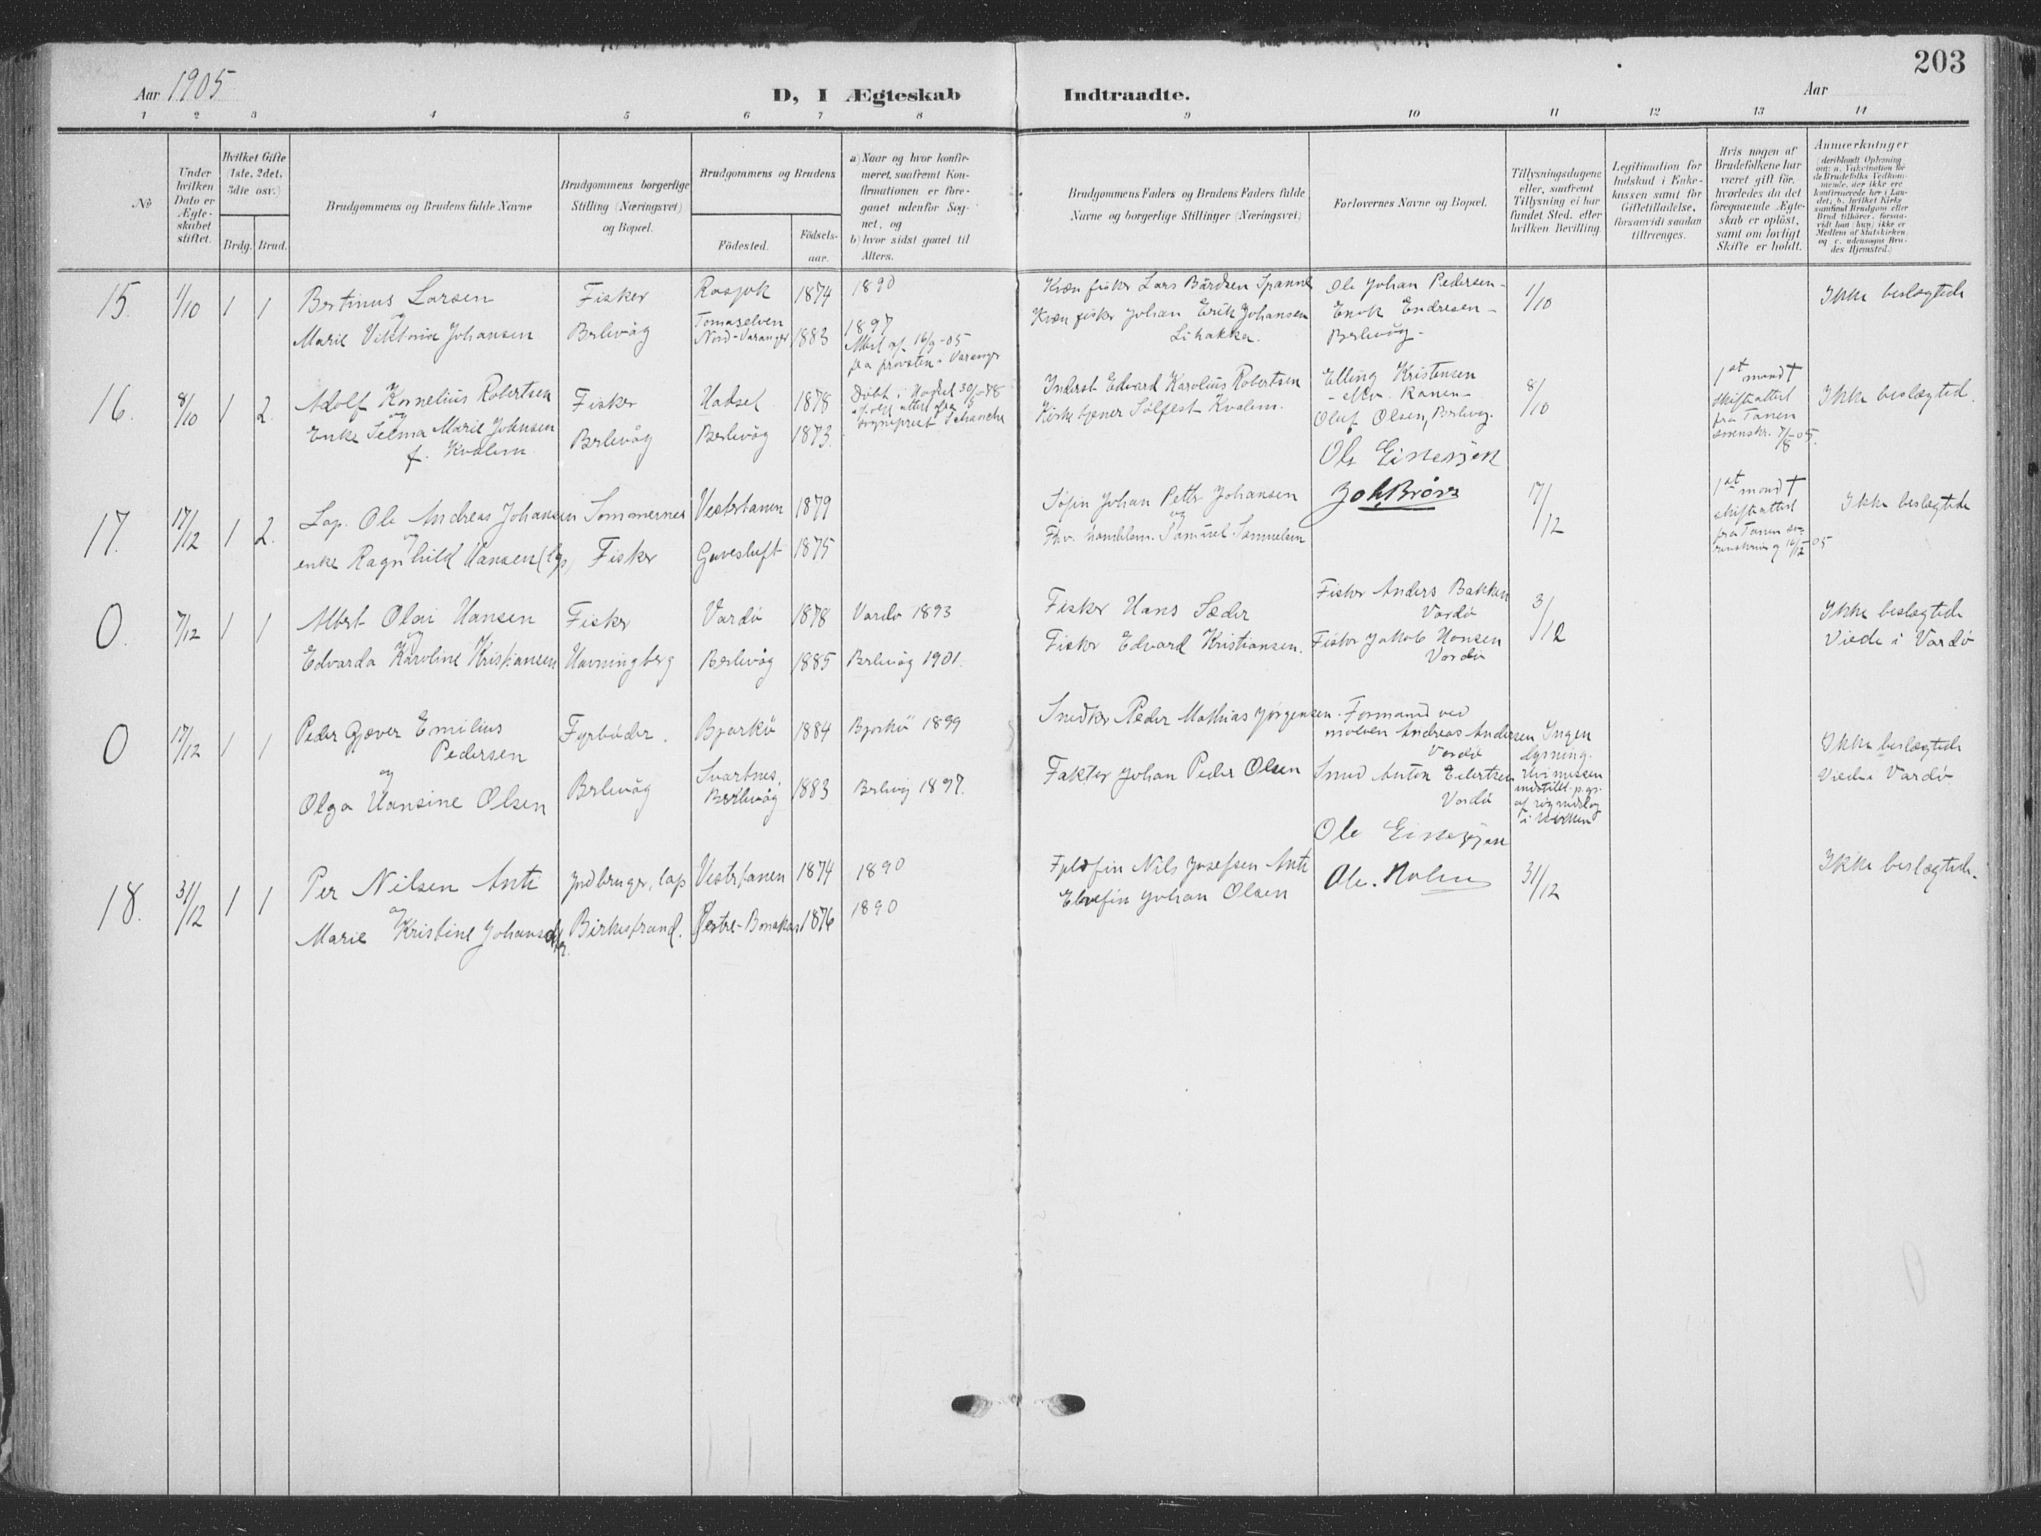 203
Aar 1905
D, I Ægteskab Indtraadte.
Aar
1 2 3 4 5 6 7 8 9 10 11 12 13 14
No
Under hvilken Dato er Ægteskabet stiftet.
Hvilket Gifte (1ste, 2det, 3die osv.)
Brdg. Brud.
Brudgommens og Brudens fulde Navne
Brudgommens borgerlige Stilling (Næringsvei) og Bopæl.
Brudgommens og Brudens
Födested. Födselsaar.
a) Naar og hvor konfirmeret, saafremt Konfirmationen er foreganet udenfor Sognet, og
b) hvor sidst gaaet til Alters.
Brudgommens Faders og Brudens Faders fulde Navne og borgerlige Stillinger (Næringsvei)
Forlovernes Navne og Bopæl.
Tillysningsdagene eller, saafremt Tillysning ei har fundet Sted, efter hvilken Bevilling.
Legitimation for Indskud i Enkekassen samt for Giftetilladelse, forsaavidt saadan tiltrænges.
Hvis nogen af Brudefolkene har været gift för, hvorledes da det foregaaende Ægteskab er oplöst, samt om lovligt Skifte er holdt.
Anmærkninger
15. 1/10 1 1 Bertinus Larsen Fisker Rasjok 1874 1890 Kvæn fisker Lars Bårdsen Spanne Ole Johan Pedersen - 1/10 Ikke beslægtede
og
Marie Viktoria Johansen Berlevåg Tomaselven Nord-Varanger 1883 1897 Kvæn fisker Johan Erik Johansen Lihakka. Enok Endresen - Berlevåg -
Attest af 16/9-05
fra provsten i Varanger
16. 8/10 1 2. Adolf Kornelius Robertsen Fisker Hadsel 1878 Döbt i Hadsel Inderst Edvard Karolius Robertsen Elling Kristensen 8/10 1st mand † Ikke beslægted.
og
Enke Selma Marie Johnsen Berlevåg Berlevåg 1873. Kirketjener Sölfest Kvalem. Oluf Olsen, Berlevåg. skifteattest fra Tanen
f. Kvalem sorenskr. 7/8-05.
Ole
17. 17/12 1 2. Lap. Ole Andreas Johansen Sommernes Vestertanen 1879 Søfin Johan Petter Johansen 17/12 1st mand † Ikke beslægtede
og
enke Ragnhild Hansen (lap) Fisker Gavesluft 1875 Samuel Samuelsen skifteattest
fra Tanen 16/12-05
0. 7/12 1 1 Albert Olai Hansen Fisker Vardö 1878 Vardö 1893 Fisker Hans Sæder Fisker Anders Bakken Vardö 3/12 Ikke beslægtede
og
Edvarda Karoline Kristiansen Havningberg Berlevåg 1885 Berlevåg 1901. Fisker Edvard Kristiansen. Fisker Jakob Hansen Vardö Viede i Vardö
0 17/12 1 1 Peder Gjæver Emilius Pedersen Fyrböder. Bjarkö 1884 Bjarkö 1899 Snedker Peder Mathias Jørgensen. Formand ved moloen Andreas Andersen Vardö Ingen lysning. Ikke beslægtede
og
Olga Hansine Olsen Berlevåg Svartnes, Berlevåg 1883 Berlevåg 1897. Faktor Johan Peder Olsen Smed Anton Eilertsen Vardö Viede i Vardö
Ole
18. 31/12 1 1 Per Nilsen Anti Jordbruger, lap Vestertanen 1874 1890 Fjeldfin Nils Josefsen Anti Ole Holm 31/12 Ikke beslægtede.
og
Marie Kristine Johansdtr. Birkestrand. Vestre-Bonakas 1876 1890 Elvefin Johan Olsen